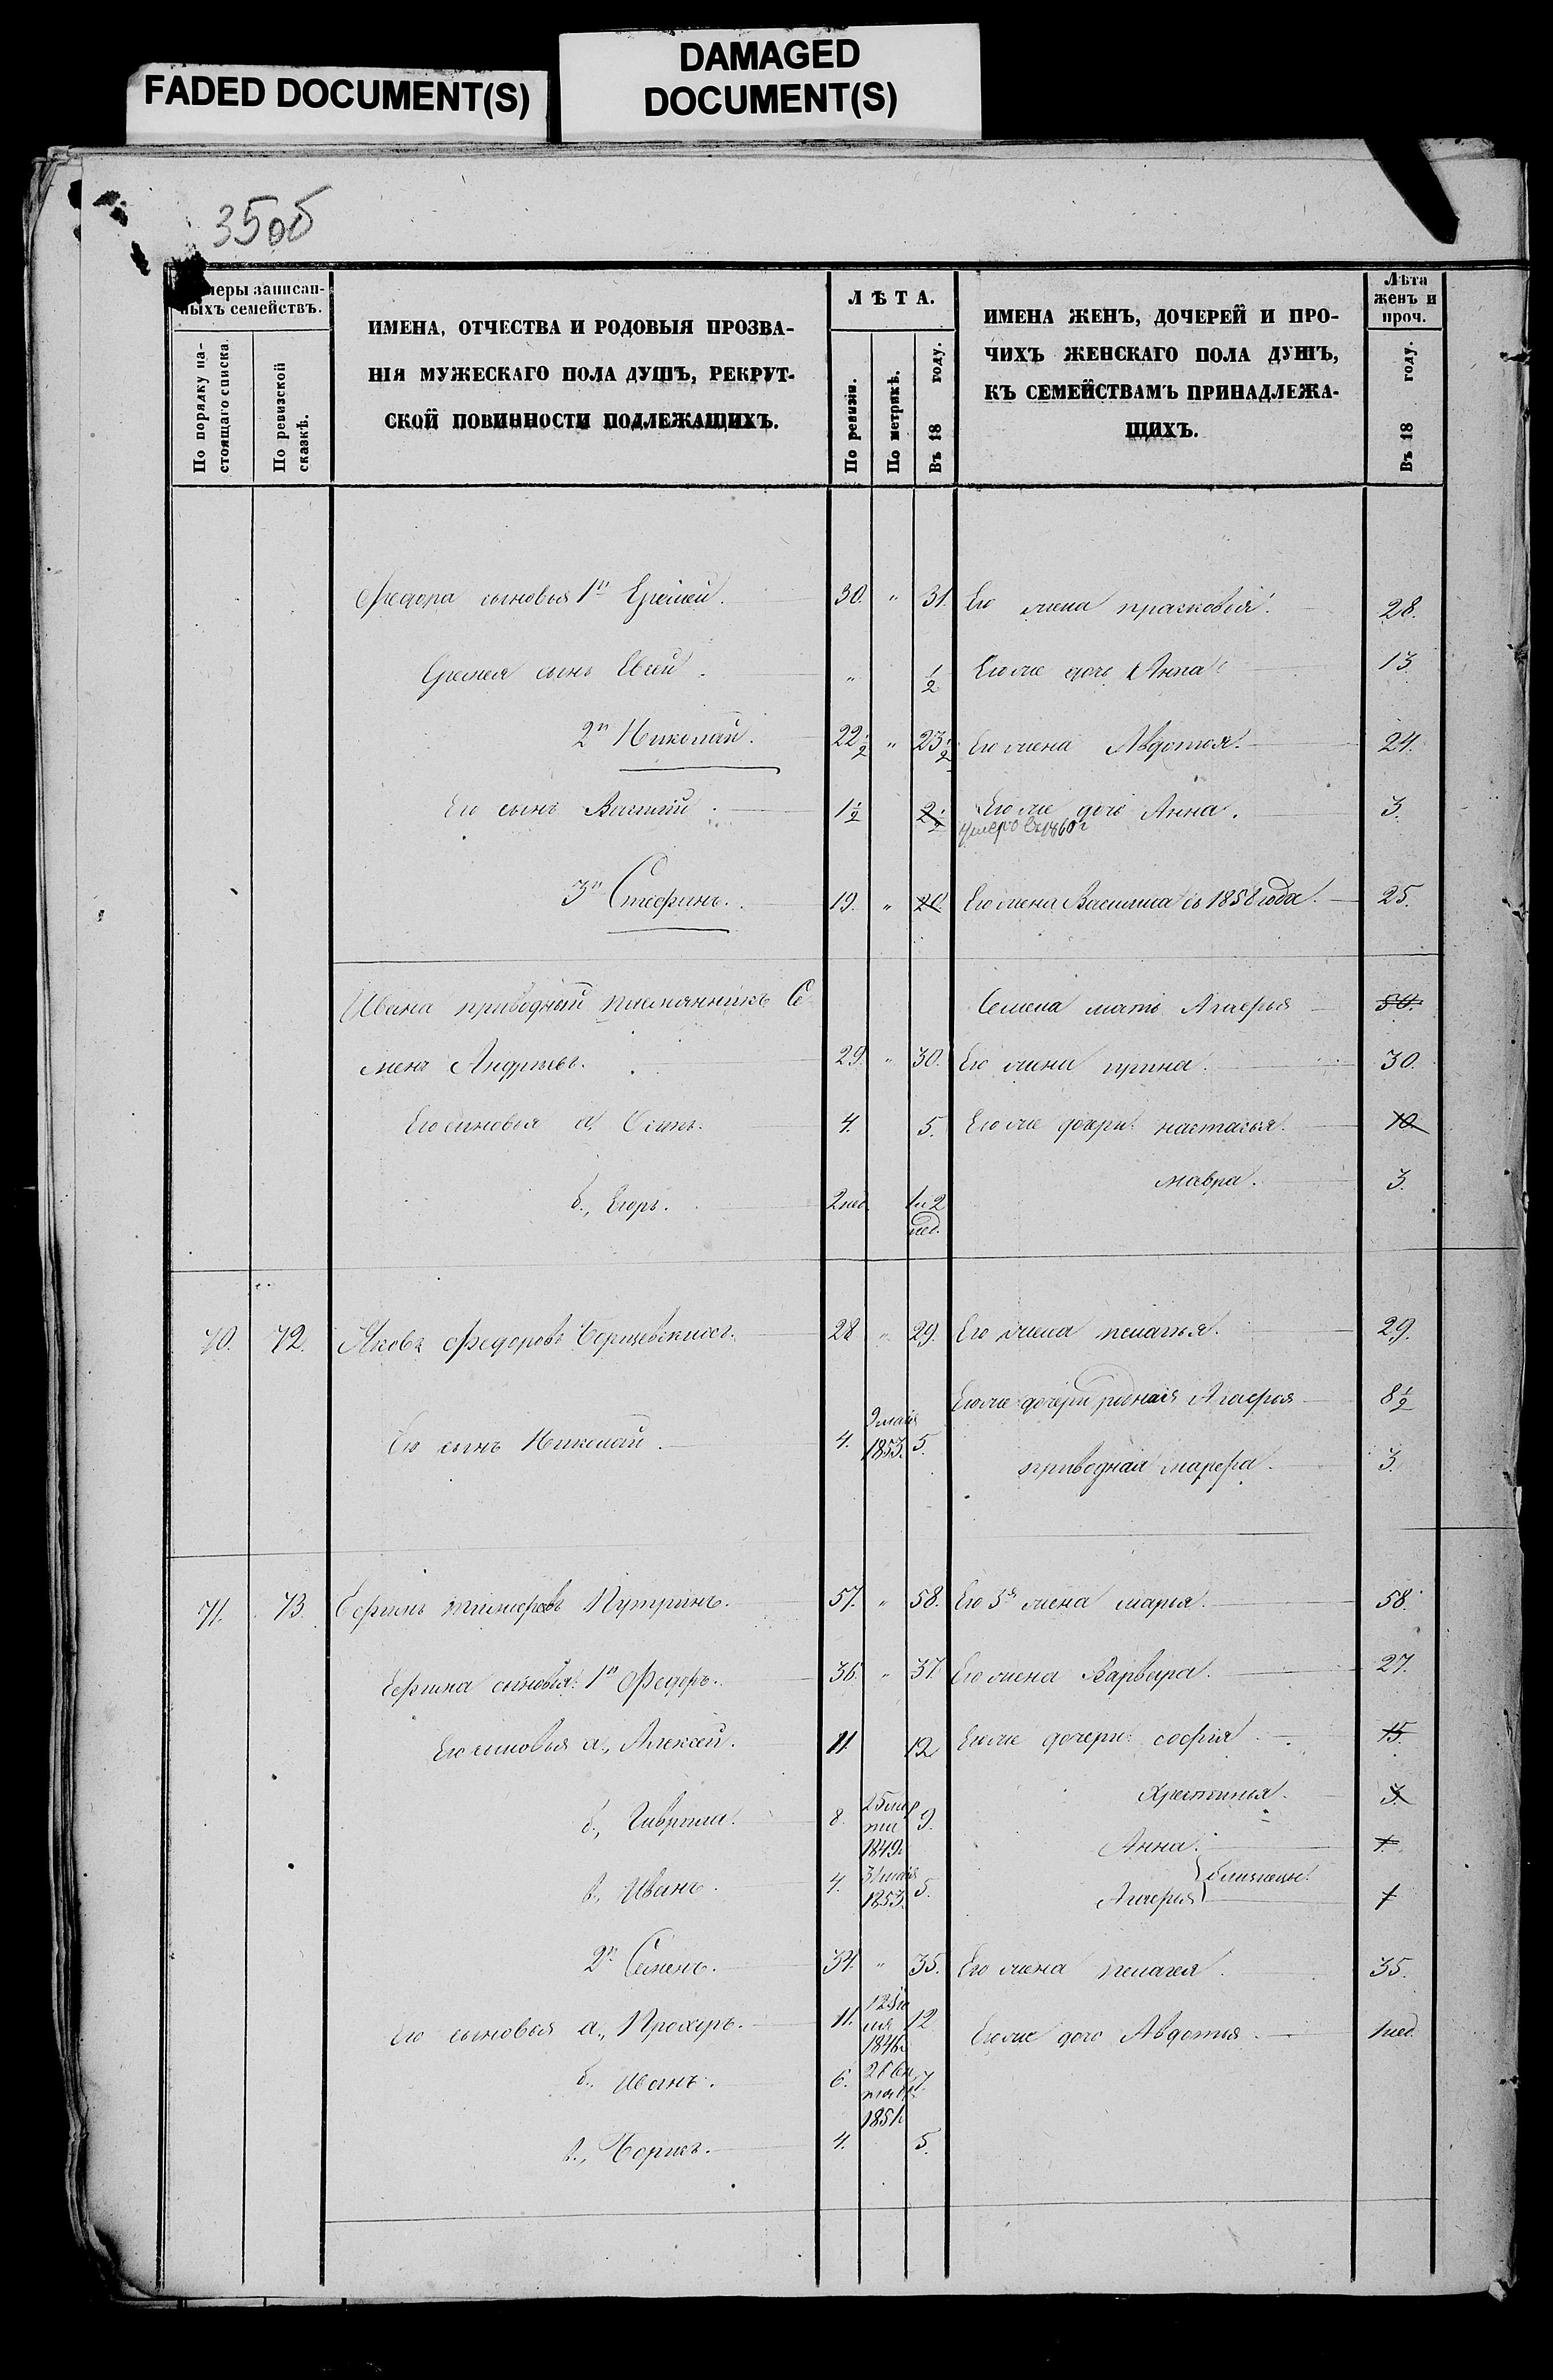 FADED DOCUMENT(S)
DAMAGED
DOCUMENT(S)
35об
меры записан-
ныхъ семействъ.
По порядку на-
стоящаго списка.
По ревизской
сказкѣ.
ИМЕНА, ОТЧЕСТВА И РОДОВЫЯ ПРОЗВА-
НІЯ МУЖЕСКАГО ПОЛА ДУШЪ, РЕКРУТ-
СКОЙ ПОВИННОСТИ ПОДЛЕЖАЩИХЪ.
ЛѢТА.
По ревизіи.
По метрикѣ.
Въ 18 году.
ИМЕНА ЖЕНЪ, ДОЧЕРЕЙ И ПРО-
ЧИХЪ ЖЕНСКАГО ПОЛА ДУШЪ,
КЪ СЕМЕЙСТВАМЪ ПРИНАДЛЕЖА-
ЩИХЪ.
Лѣта
женъ и
проч.
Въ 18 году.
Федора сыновья 1й Еремей. 30. " 31. Его жена прасковья. 28.
Еремея сынъ Евсей. " ½ Его же дочь Анна 13.
2й Николай. 22½ " 23½ Его жена Авдотья. 24.
Его сынъ Василій. 1½ 2½ Его же дочь Анна. 3.
умеръ въ 1860г
3й Стефанъ. 19. " 20. Его жена Василиса съ 1858 года. 25.
Ивана приводный племянникъ Се Семена мать Агафья 50.
менъ Андреевъ. 29. " 30. Его жена ирина. 30.
Его сыновья а, Осипъ. 4. 5. Его же дочери: настасья. 10.
мавра. 3.
б., Егоръ. 2 нед. 1 и 2
нед.
70. 72. Яковъ Федоровъ 28 " 29. Его жена пелагья. 29.
Его же дочери родная Агафья 8½
Его сынъ Николай. 4. 9 мая
1853. 5.
приводная марфа. 3.
71. 73. Путринъ. 57. " 58. Его 3я жена марья. 58.
сыновья: 1й Федоръ. 36. " 37. Его жена Варвара. 27.
Его сыновья а., Алексей. 11. 12 Его же дочери: софья 15.
Христинья. 3.
б., Гаврило. 8. 25 мар
та
1849г 9.
Анна. 1.
в., Иванъ. 4. 31 мая
1853. 5.
близнецы.
Агафья 1
2й Семенъ. 34. " 35. Его жена пелагея. 35.
Его сыновья а., Прохоръ. 11. 1846г 12 Его же дочь Авдотья. 1 нед.
б., Иванъ. 6. 1851г 7.
в., Борисъ. 4. 5.